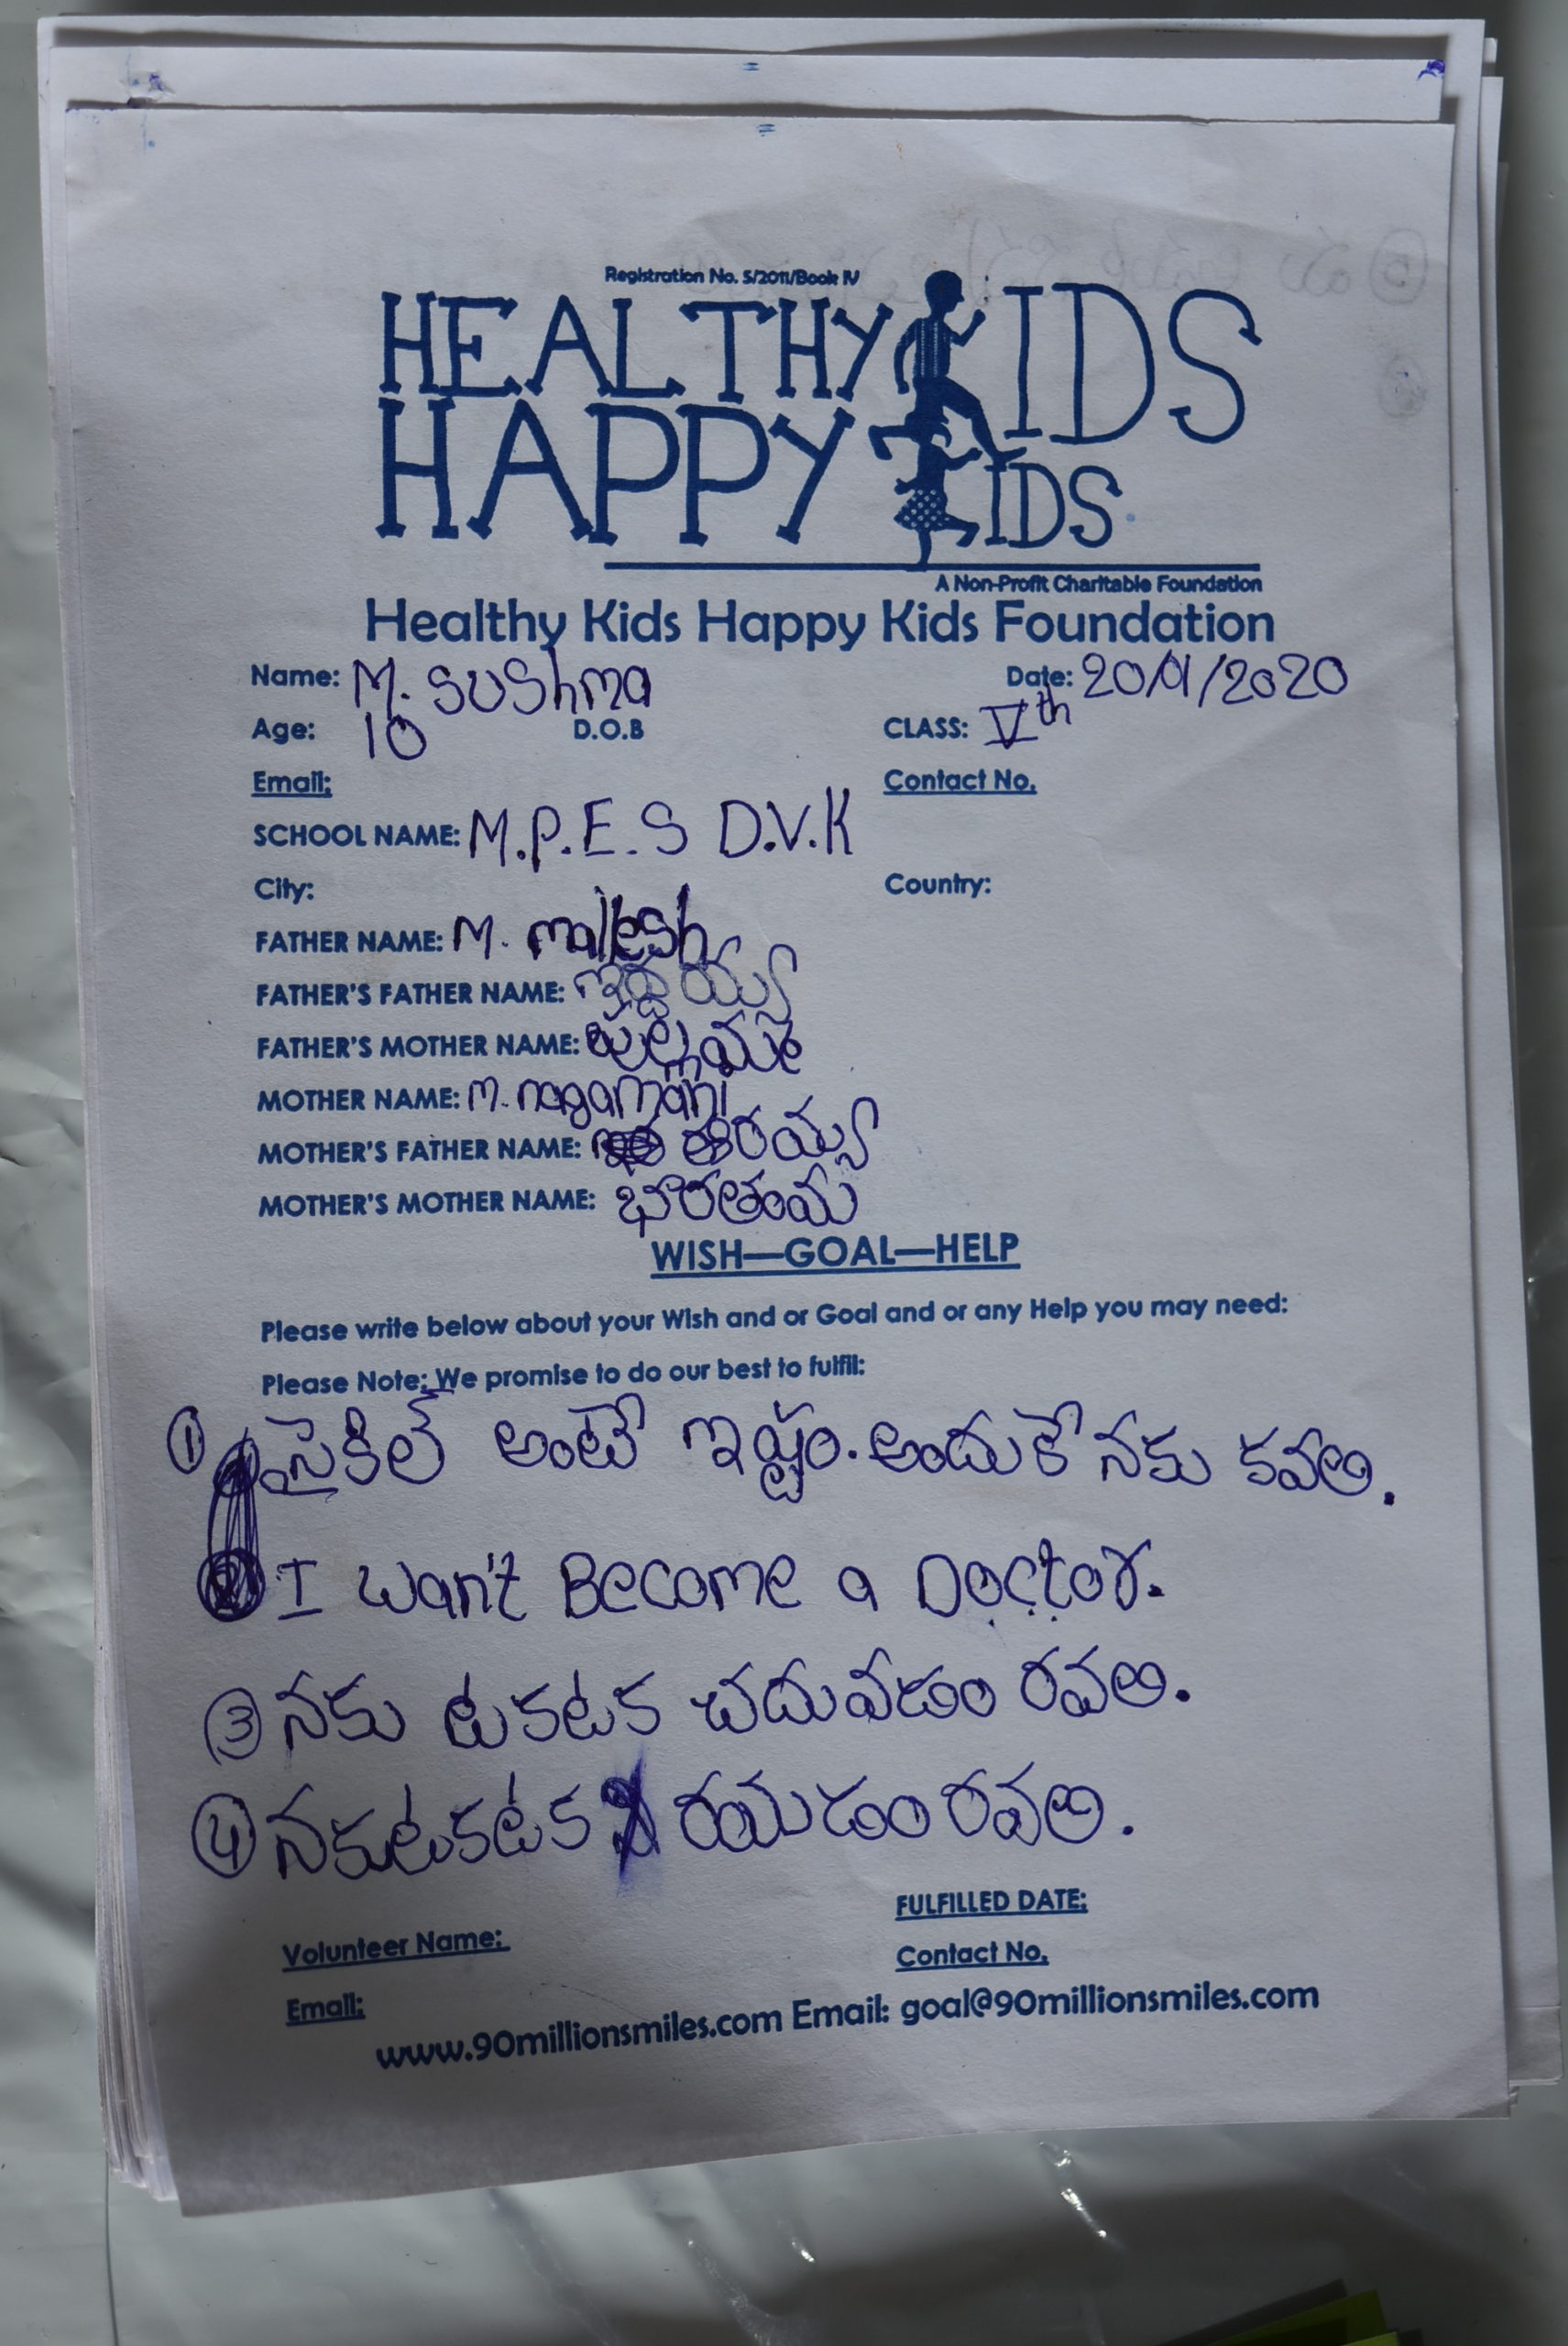 Registration No. 5/2011/Book IV
HEALTHY KIDS
HAPPY KIDS
A Non-Profit Charitable Foundation
Healthy Kids Happy Kids Foundation
Name: M. SUShma Date: 20/01/2020
Age: 10 D.O.B CLASS: Vth
Email: Contact No.
SCHOOL NAME: M.P.E.S D.V.K
City: Country:
FATHER NAME: M. mallesh
FATHER'S FATHER NAME: ఇద్దయ్య
FATHER'S MOTHER NAME:
MOTHER NAME: M. nagamani
MOTHER'S FATHER NAME:
MOTHER'S MOTHER NAME: భారతంమ
WISH—GOAL—HELP
Please write below about your Wish and or Goal and or any Help you may need:
Please Note: We promise to do our best to fulfil:
① సైకిల్ అంటే ఇష్టం. అందుకే నకు కవలి.
② I wan't Become a Doctor.
③ నకు టకటక చదువడం రవలి.
④ నకు టకటక రయడం రవలి.
FULFILLED DATE:
Volunteer Name: Contact No.
Email:
www.90millionsmiles.com Email: goal@90millionsmiles.com